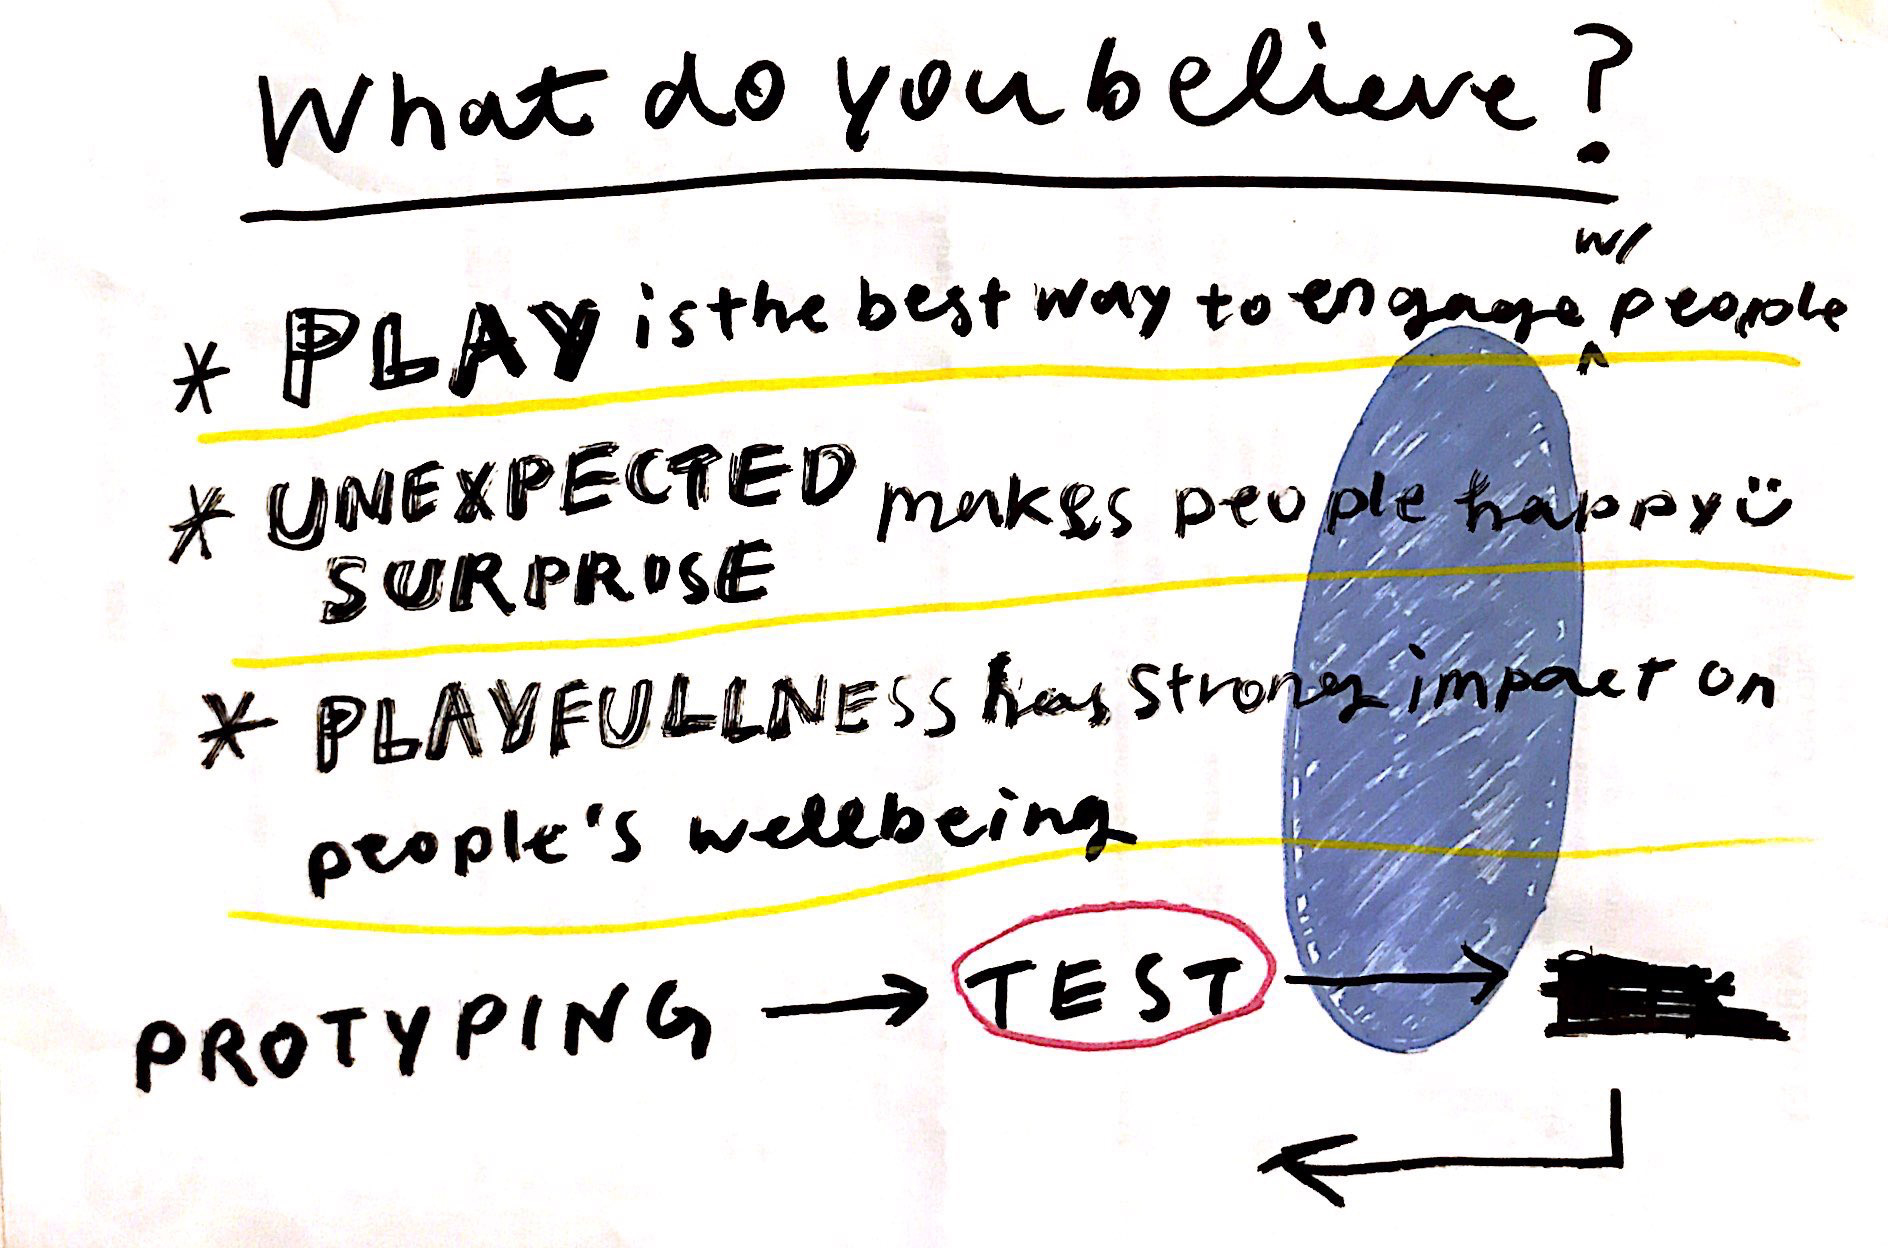 What do you believe?
* PLAY is the best way to engage w/ people
* UNEXPECTED makes people happy
SURPRISE
* PLAYFULLNESS has strong impact on
people's wellbeing
PROTYPING → TEST →